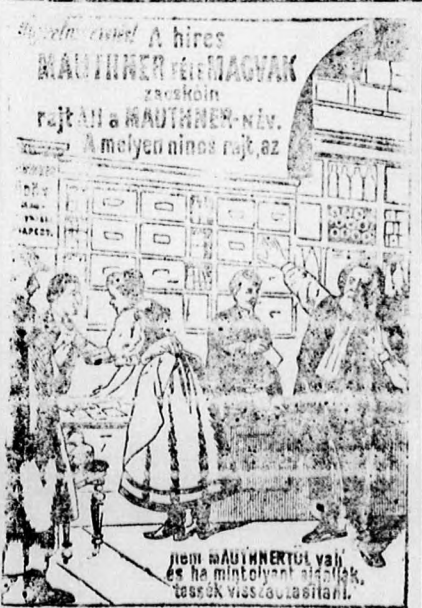 A hires
MAUTHNER féle MAGVAK
zacskóin
rajt áll a MAUTHNER-NÉV.
A melyen nincs rajt, az
nem MAUTHNERTÓL való
és ha mint olyant ajánlják,
tessék visszautasítani.